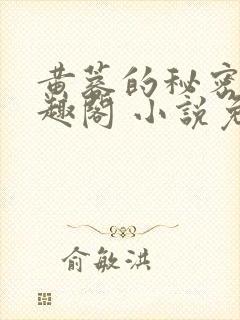 黄蓉的秘密
趣阁 小说免
俞敏洪